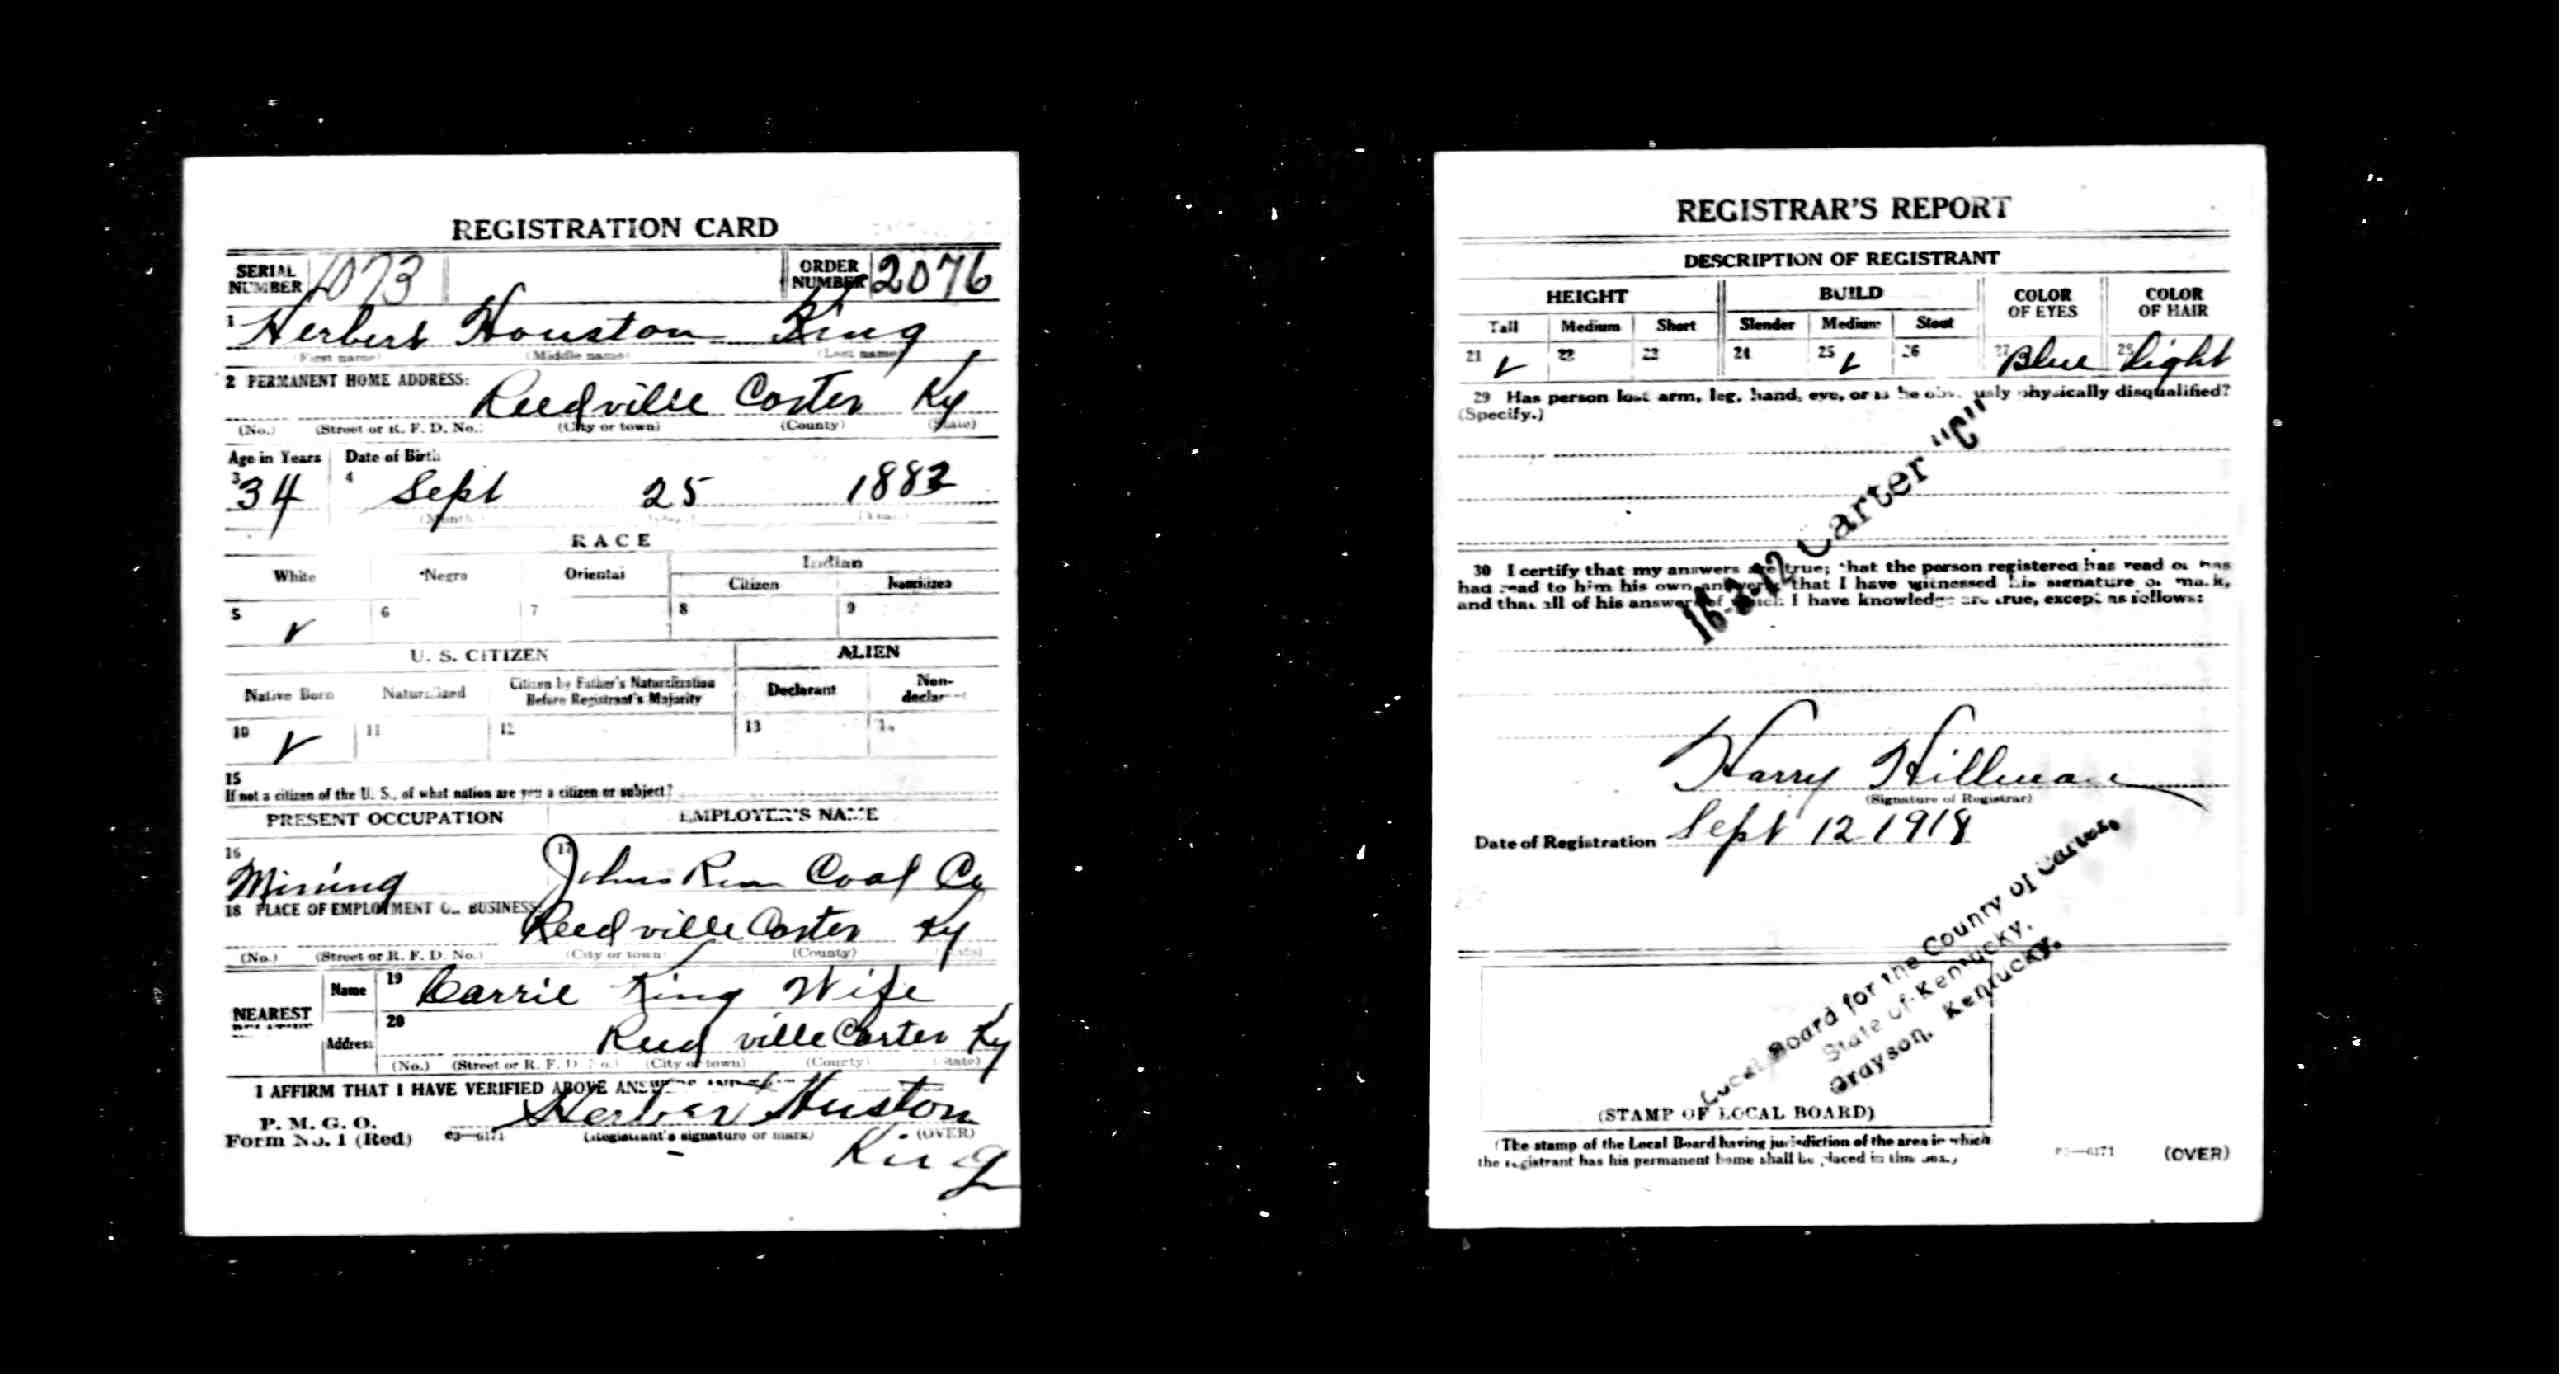 REGISTRATION CARD
SERIAL NUMBER 1073 ORDER NUMBER 2076
1 Herbert Houston King
(First name) (Middle name) (Last name)
2 PERMANENT HOME ADDRESS:
Reedville Carter Ky
(No.) (Street or R. F. D. No.) (City or town) (County) (State)
Age in Years Date of Birth
3 34 4 Sept 25 1883
(Month)
RACE
White Negro Oriental Indian
Citizen Noncitizen
5 ✓ 6 7 8 9
U. S. CITIZEN ALIEN
Native Born Naturalized Citizen by Father's Naturalization Before Registrant's Majority Declarant Non-declarant
10 ✓ 11 12 13 14
15
If not a citizen of the U. S., of what nation are you a citizen or subject?
PRESENT OCCUPATION EMPLOYER'S NAME
16 Mining 17 Johns Run Coal Co
18 PLACE OF EMPLOYMENT OR BUSINESS:
Reedville Carter Ky
(No.) (Street or R. F. D. No.) (City or town) (County) (State)
NEAREST RELATIVE Name 19 Carrie King Wife
Address 20 Reed ville Carter Ky
(No.) (Street or R. F. D. No.) (City or town) (County) (State)
I AFFIRM THAT I HAVE VERIFIED ABOVE ANSWERS AND
P. M. G. O.
Form No. 1 (Red) 03—6171 Herber Huston King
(Registrant's signature or mark) (OVER)
REGISTRAR'S REPORT
DESCRIPTION OF REGISTRANT
HEIGHT BUILD COLOR OF EYES COLOR OF HAIR
Tall Medium Short Slender Medium Stout
21 ✓ 22 23 24 25 ✓ 26 27 Blue 28 Light
29 Has person lost arm, leg, hand, eye, or is he obviously physically disqualified?
(Specify.)
16-3-12 Carter "C"
30 I certify that my answers are true; that the person registered has read or has
had read to him his own answers; that I have witnessed his signature or mark,
and that all of his answers of which I have knowledge are true, except as follows:
Harry Hillman
(Signature of Registrar)
Date of Registration Sept 12 1918
Local Board for the County of Carter,
State of Kentucky,
Grayson, Kentucky.
(STAMP OF LOCAL BOARD)
(The stamp of the Local Board having jurisdiction of the area in which
the registrant has his permanent home shall be placed in this box.)
03—6171 (OVER)